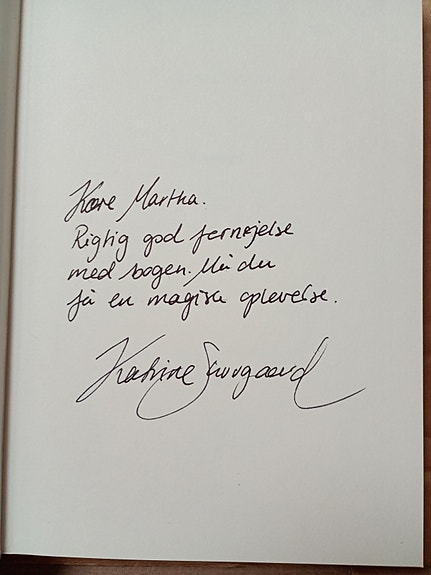 Kære Martha.
Rigtig god fornøjelse
med bogen. Må du
få en magisk oplevelse.
Katrine